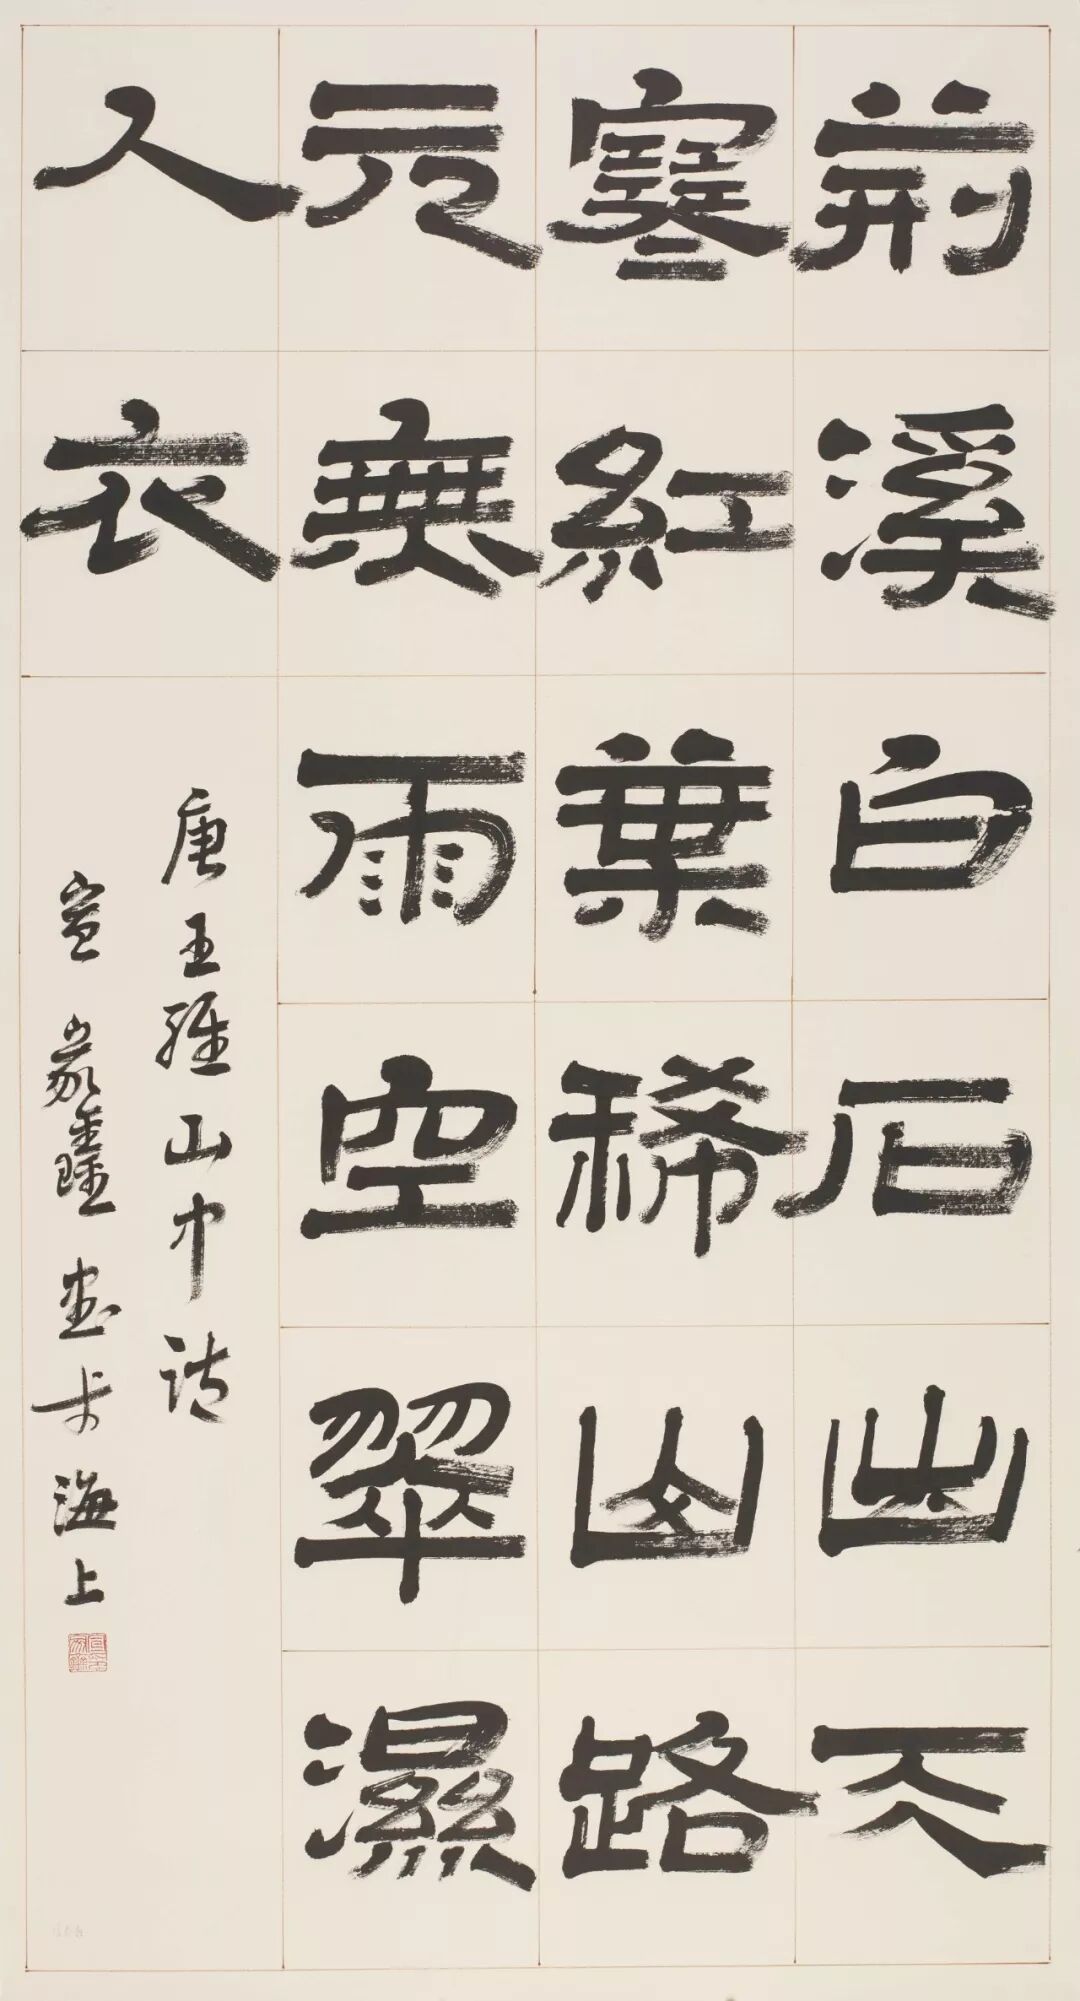 荊溪白石出天
寒紅葉稀山路
元無雨空翠濕
人衣
唐王維山中詩
宣家鑫書于海上
宣家鑫